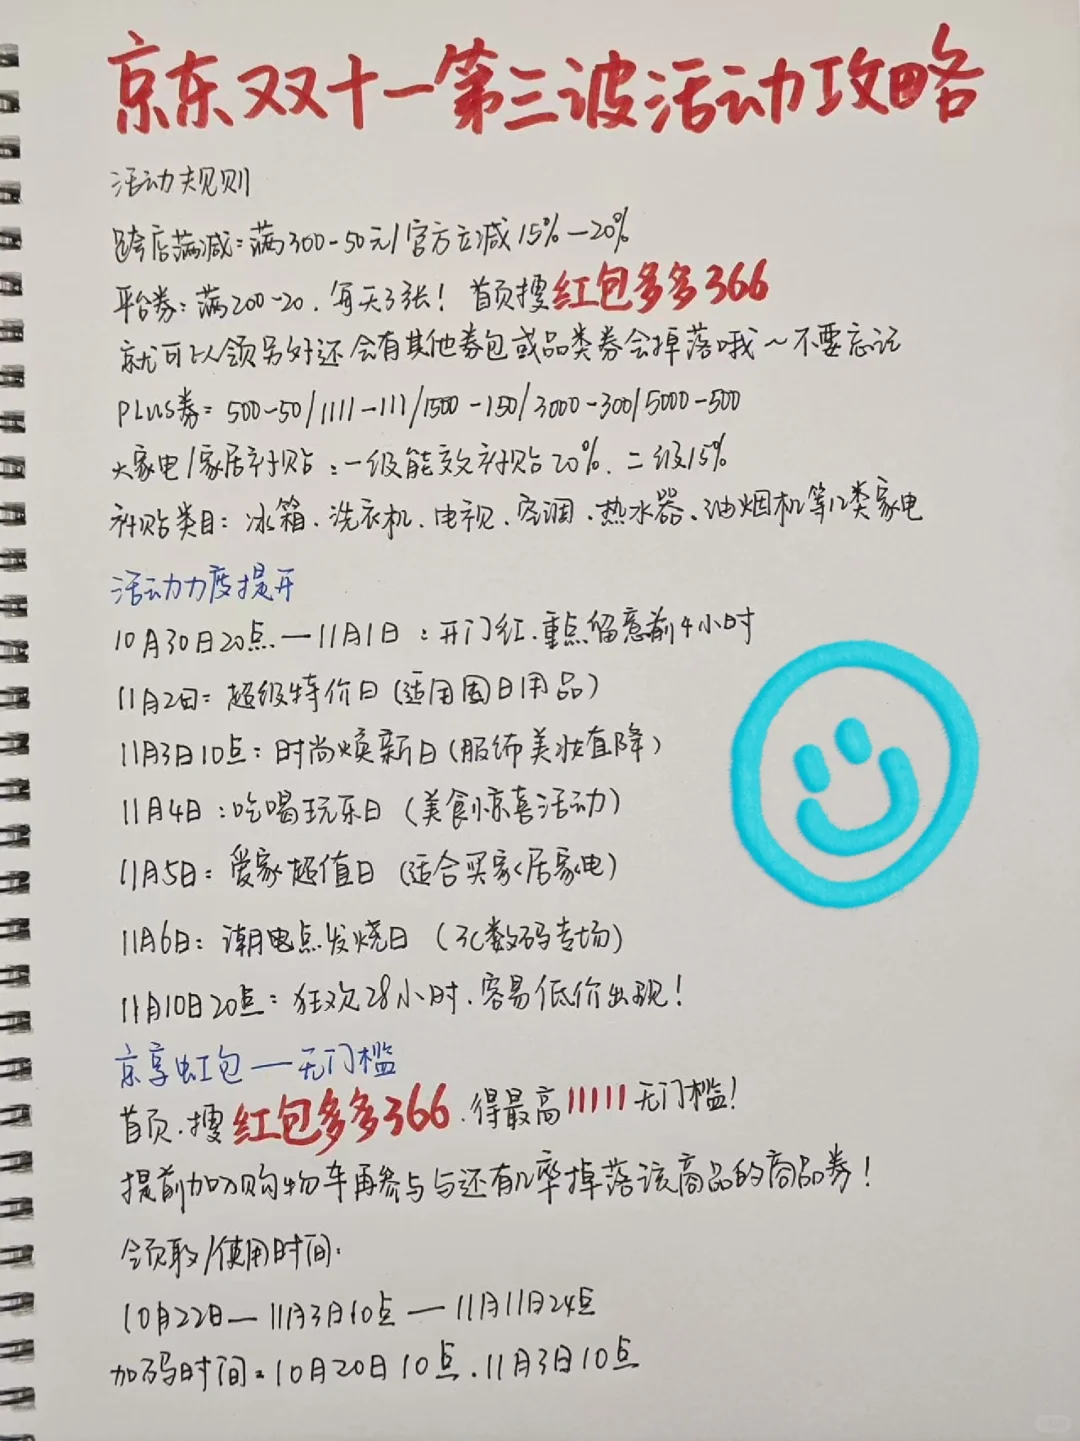 京东双十一第三波活动攻略
活动规则
跨店满减:满300-50元/官方立减15%—20%
平台券:满200-20.每天3张！首页搜红包多多366
就可以领另外还会有其他券包或品类券会掉落哦~不要忘记
PLUS券=500-50/1111-111/1500-150/3000-300/5000-500
大家电/家居补贴:一级能效补贴20%.二级15%
补贴类目:冰箱.洗衣机.电视.空调.热水器.油烟机等12类家电
活动力度提开
10月30日20点—11月1日:开门红.重点留意前4小时
11月2日:超级特价日(适用囤日用品)
11月3日10点:时尚焕新日(服饰美妆直降)
11月4日:吃喝玩乐日(美食惊喜活动)
11月5日:爱家超值日(适合买家居家电)
11月6日:潮电点发烧日(3C数码专场)
11月10日20点:狂欢28小时.容易低价出现！
京享红包—无门槛
首页.搜红包多多366.得最高11111无门槛！
提前加入购物车再参与与还有几率掉落该商品的商品券！
领取/使用时间:
10月22日—11月3日10点—11月11日24点
加码时间:10月20日10点.11月3日10点